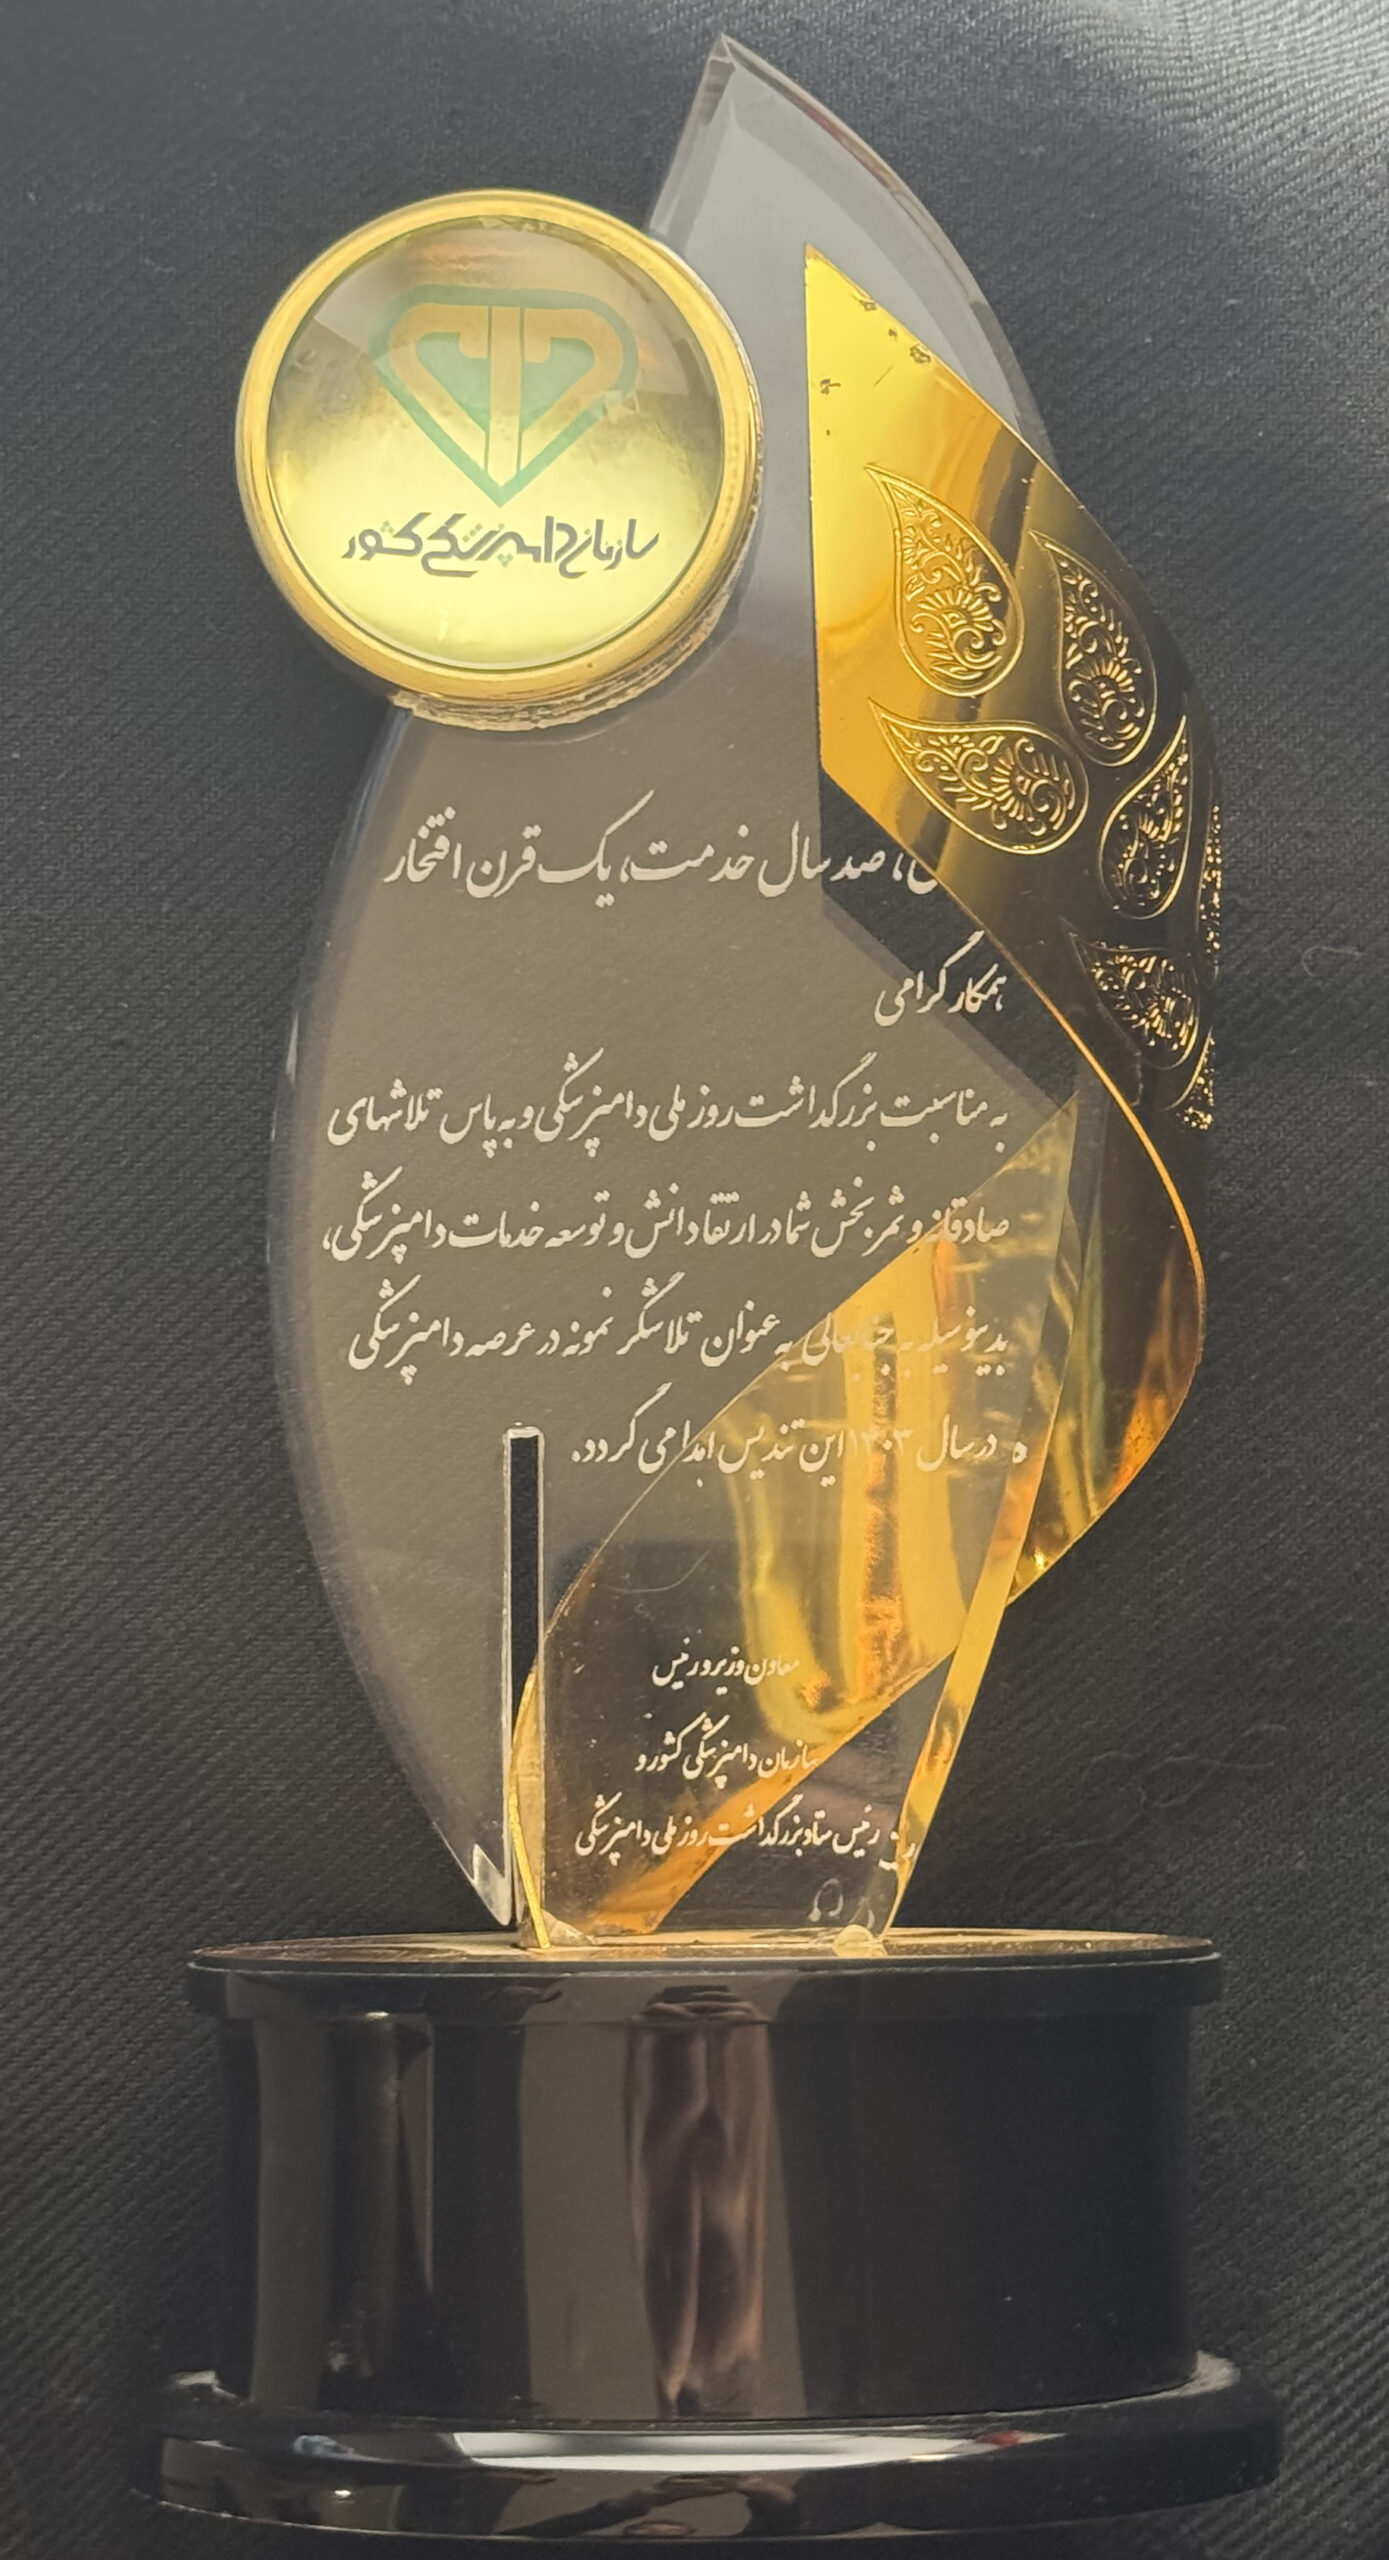 سازمان دامپزشکی کشور
، صد سال خدمت، یک قرن افتخار
همکار گرامی
به مناسبت بزرگداشت روز ملی دامپزشکی و به پاس تلاشهای
صادقانه و ثمربخش شما در ارتقا دانش و توسعه خدمات دامپزشکی،
بدینوسیله به جنابعالی به عنوان تلاشگر نمونه در عرصه دامپزشکی
در سال ۱۴۰۳ این تندیس اهدا می گردد.
معاون وزیر و رئیس
سازمان دامپزشکی کشور و
رئیس ستاد بزرگداشت روز ملی دامپزشکی